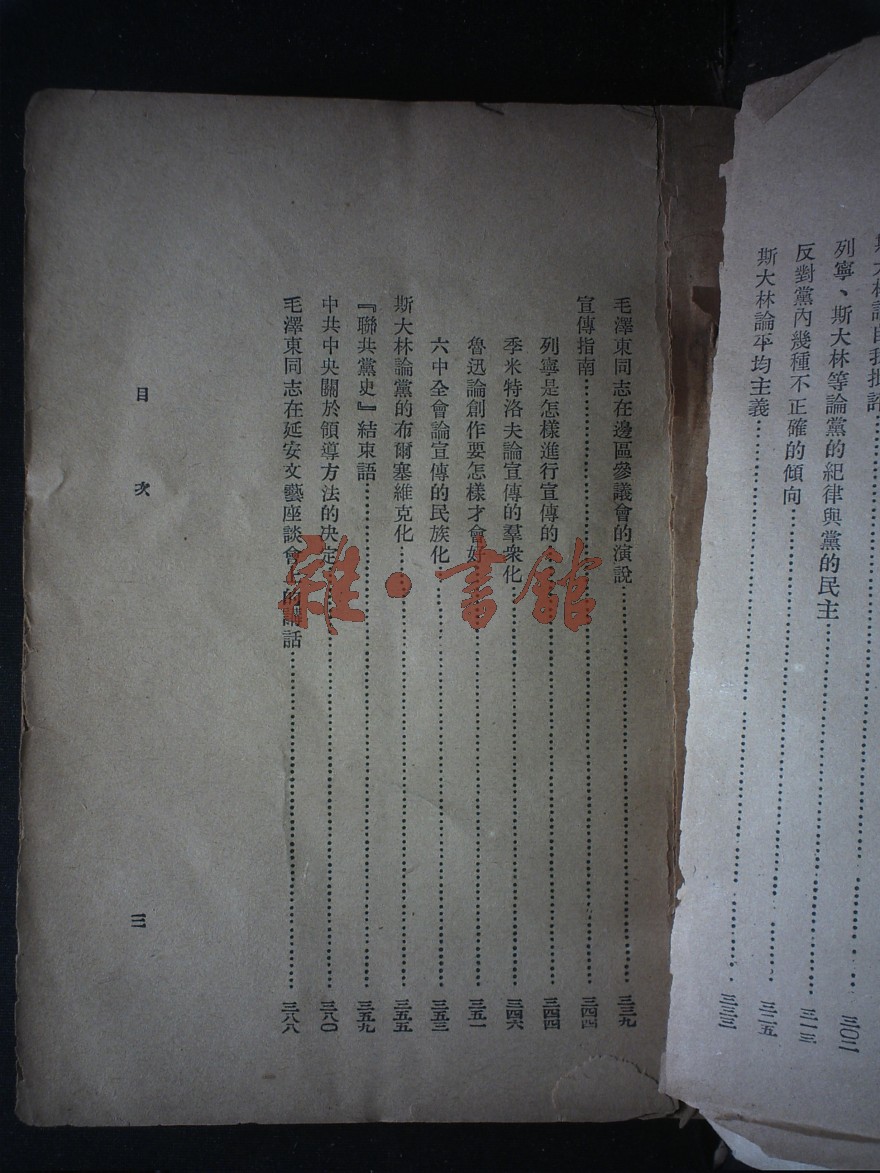 斯大林論自我批評……三〇二
列寧、斯大林等論黨的紀律與黨的民主……三一三
反對黨內幾種不正確的傾向……三二五
斯大林論平均主義……三三三
毛澤東同志在邊區參議會的演說……三三九
宣傳指南……三四四
列寧是怎樣進行宣傳的……三四四
季米特洛夫論宣傳的羣衆化……三四六
魯迅論創作要怎樣才會好……三五一
六中全會論宣傳的民族化……三五三
斯大林論黨的布爾塞維克化……三五五
『聯共黨史』結束語……三五九
中共中央關於領導方法的決定……三八〇
毛澤東同志在延安文藝座談會上的講話……三八八
目次
三
雜·書館